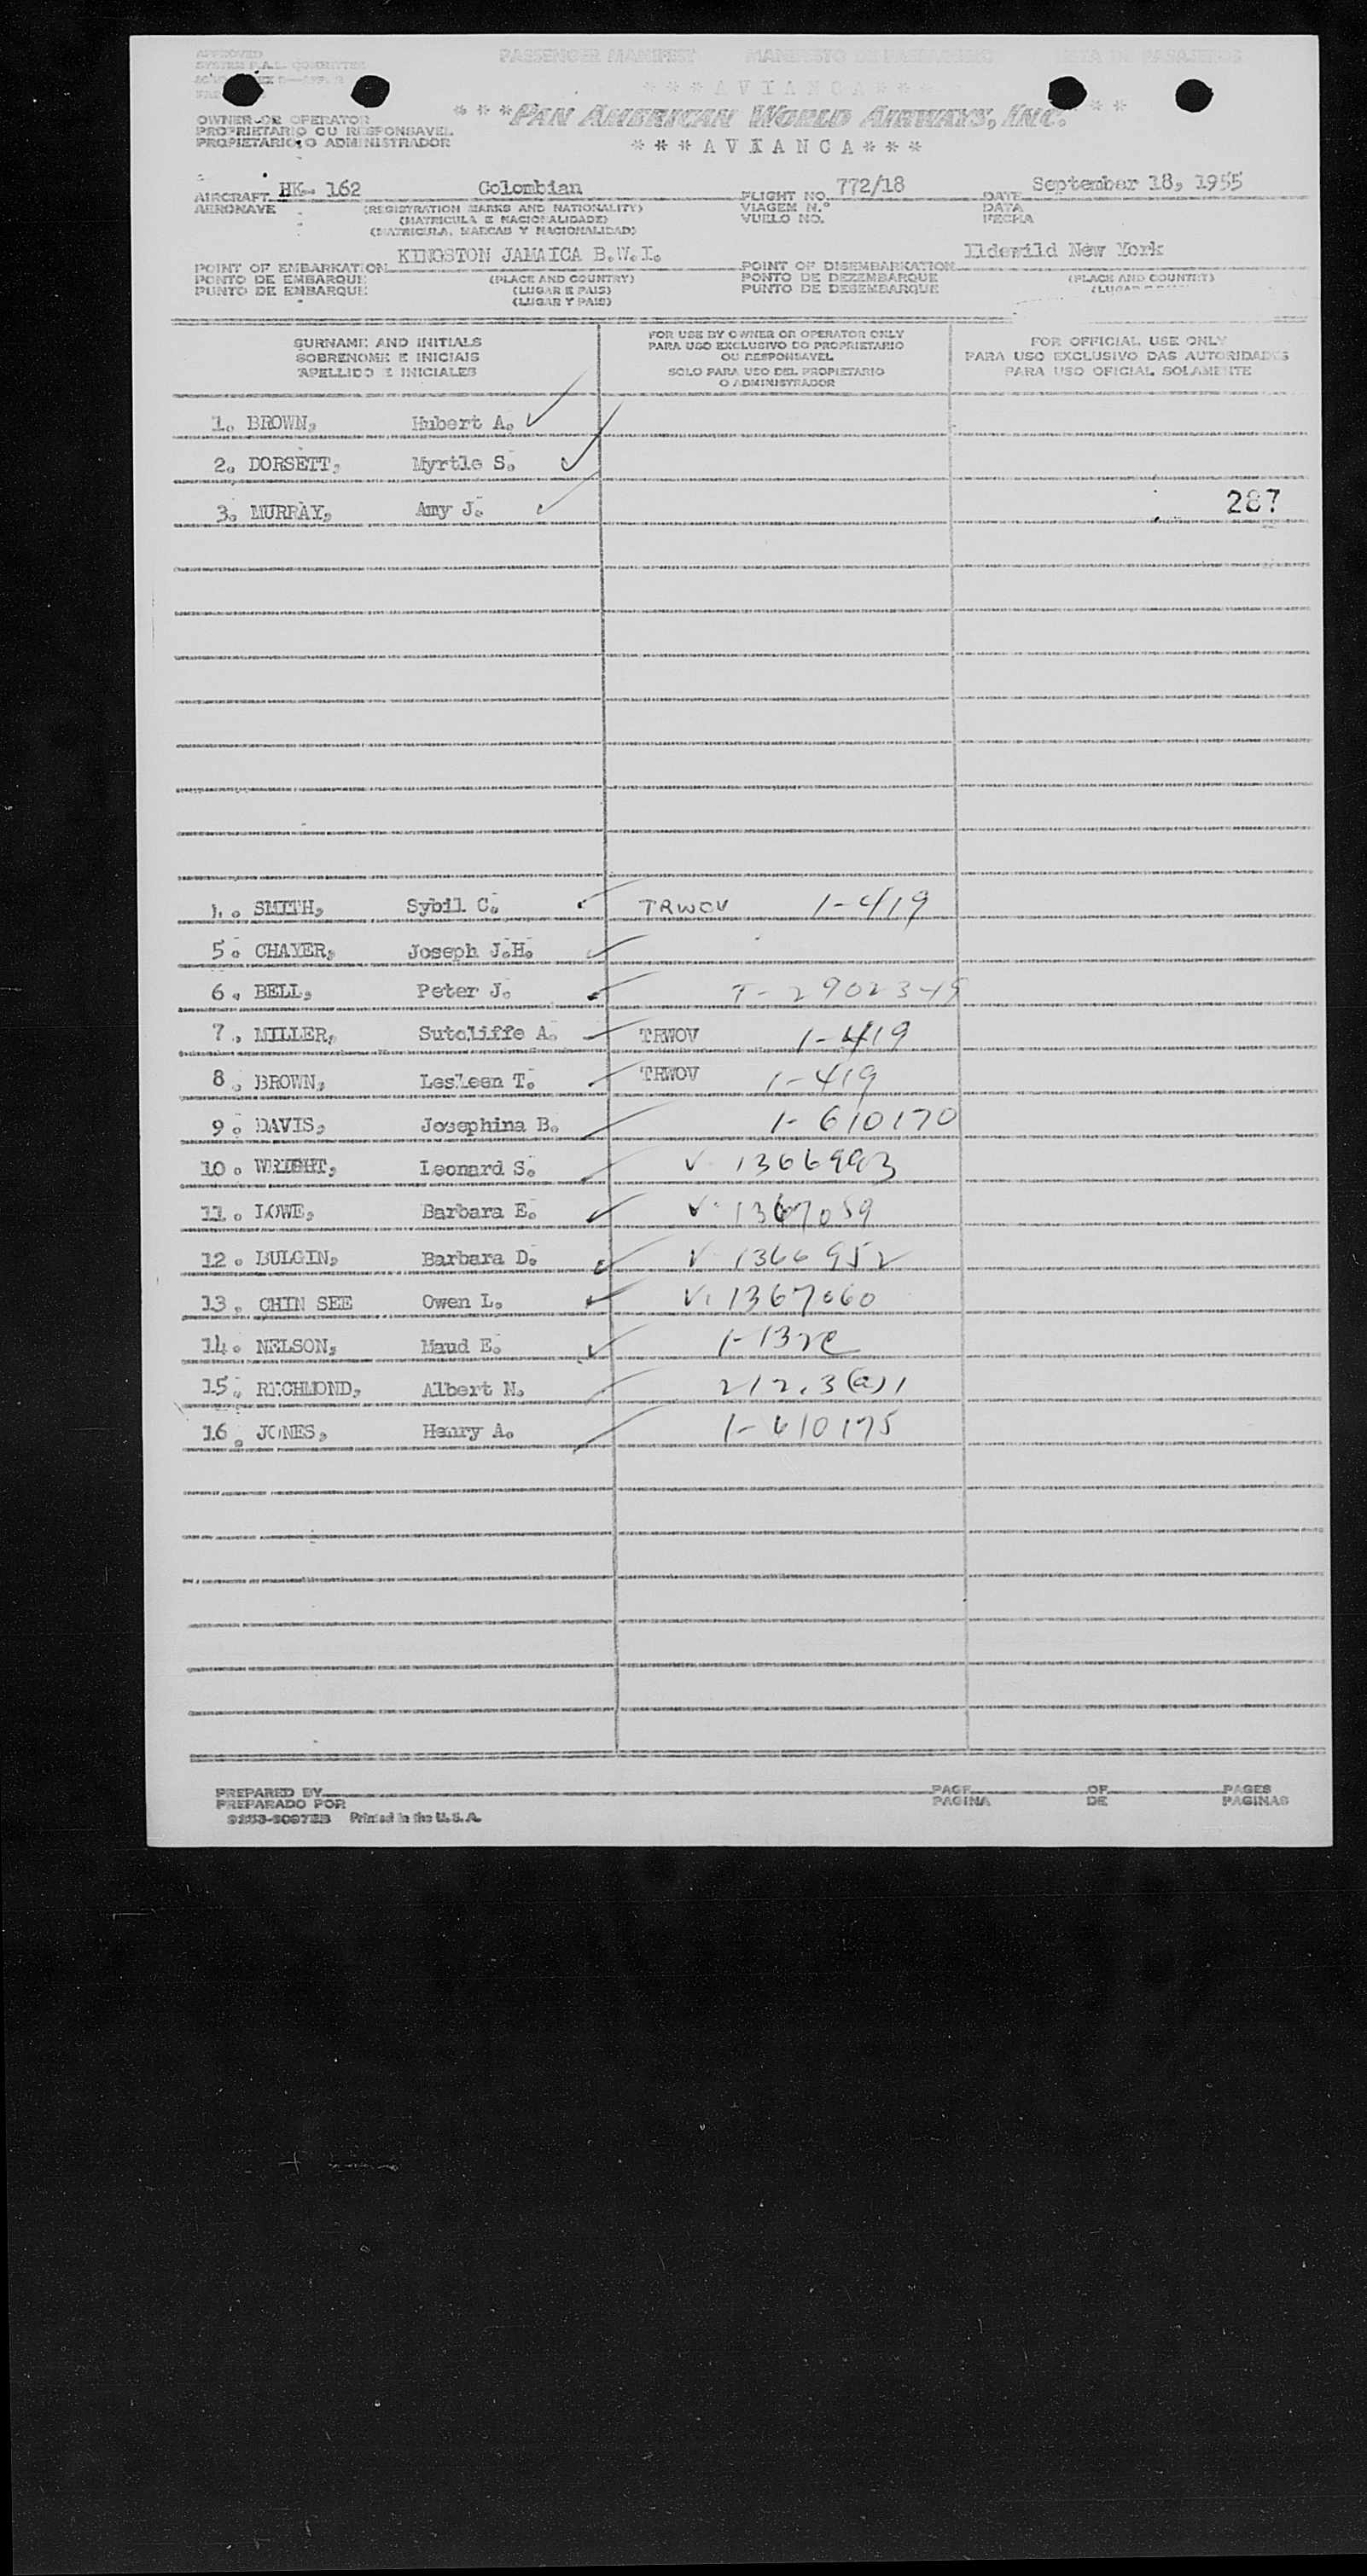 APPROVED
PASSENGER MANIFEST MANIFESTO DE LISTA DE PASAJEROS
* * * A V I A N C A * * *
* * * PAN AMERICAN WORLD AIRWAYS, INC. * *
OWNER OR OPERATOR
PROPRIETARIO OU RESPONSAVEL
PROPIETARIO O ADMINISTRADOR
* * * A V I A N C A * * *
AIRCRAFT HK- 162 Colombian FLIGHT NO. 772/18 DATE September 18, 1955
AERONAVE (REGISTRATION MARKS AND NATIONALITY) VIAGEM N.º DATA
(MATRICULA E NACIONALIDADE) VUELO NO. FECHA
(MATRICULA, MARCAS Y NACIONALIDAD)
POINT OF EMBARKATION KINGSTON JAMAICA B.W.I. POINT OF DISEMBARKATION Ildewild New York
PONTO DE EMBARQUE (PLACE AND COUNTRY) PONTO DE DEZEMBARQUE (PLACE AND COUNTRY)
PUNTO DE EMBARQUE (LUGAR E PAIS) PUNTO DE DESEMBARQUE
(LUGAR Y PAIS)
SURNAME AND INITIALS
SOBRENOME E INICIAIS
APELLIDO E INICIALES
FOR USE BY OWNER OR OPERATOR ONLY
PARA USO EXCLUSIVO DO PROPRIETARIO
OU RESPONSAVEL
SOLO PARA USO DEL PROPIETARIO
O ADMINISTRADOR
FOR OFFICIAL USE ONLY
PARA USO EXCLUSIVO DAS AUTORIDADES
PARA USO OFICIAL SOLAMENTE
1. BROWN, Hubert A. ✓
2. DORSETT, Myrtle S. ✓
3. MURRAY, Amy J. ✓ 287
4. SMITH, Sybil C. ✓ TRWOV 1-419
5. CHAYER, Joseph J.H. ✓
6. BELL, Peter J. ✓
7. MILLER, Sutcliffe A. ✓ TRWOV 1-419
8. BROWN, Lesleen T. ✓ TRWOV 1-419
9. DAVIS, Josephina B. ✓ 1- 610170
10. WRIGHT, Leonard S. ✓ V- 1366993
11. LOWE, Barbara E. ✓ V- 1367059
12. BULGIN, Barbara D. ✓ V- 1366952
13. CHIN SEE Owen L. ✓ V. 1367060
14. NELSON, Maud E. ✓
15. RICHMOND, Albert N. ✓ 212.3(a)1
16. JONES, Henry A. ✓ 1-610175
PREPARED BY PAGE OF PAGES
PREPARADO POR PAGINA DE PAGINAS
Printed in the U. S. A.